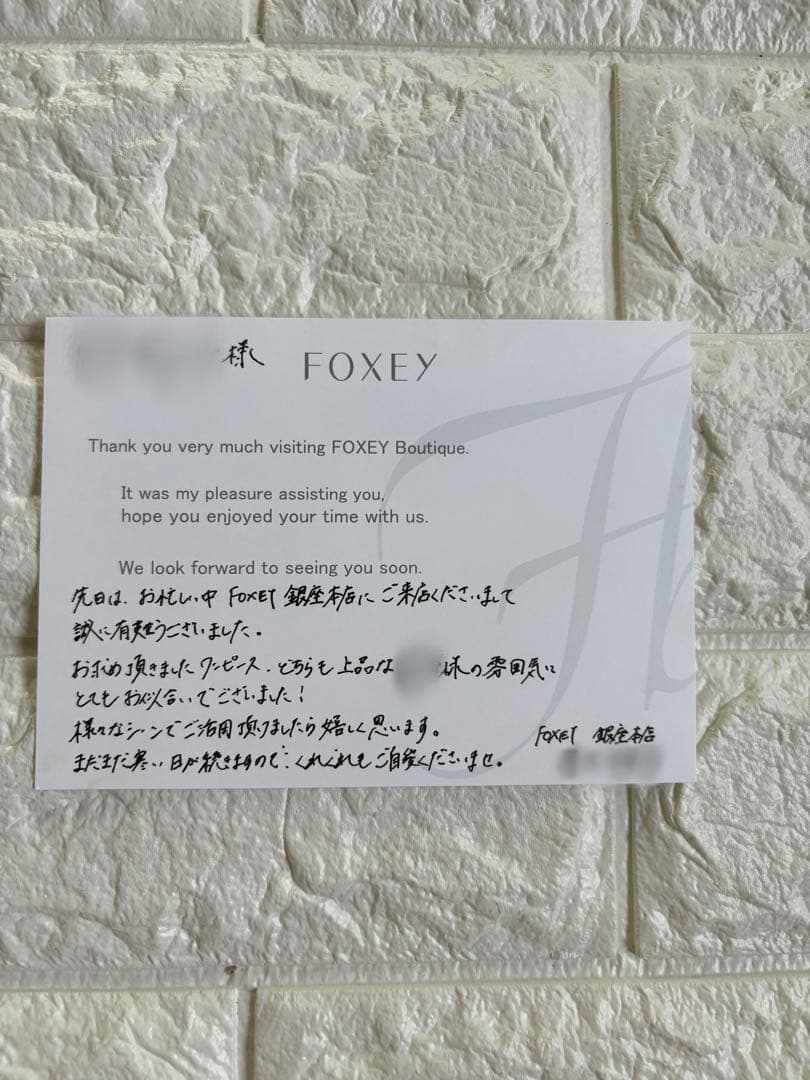 様
FOXEY
Thank you very much visiting FOXEY Boutique.
It was my pleasure assisting you,
hope you enjoyed your time with us.
We look forward to seeing you soon.
先日は、お忙しい中 FOXEY 銀座本店にご来店くださいまして
誠に有難うございました。
お求め頂きましたワンピース、どちらも上品な 様の雰囲気に
とてもお似合いでございました！
様々なシーンでご活用頂けましたら嬉しく思います。
まだまだ寒い日が続きますので、くれぐれもご自愛くださいませ。
FOXEY 銀座本店